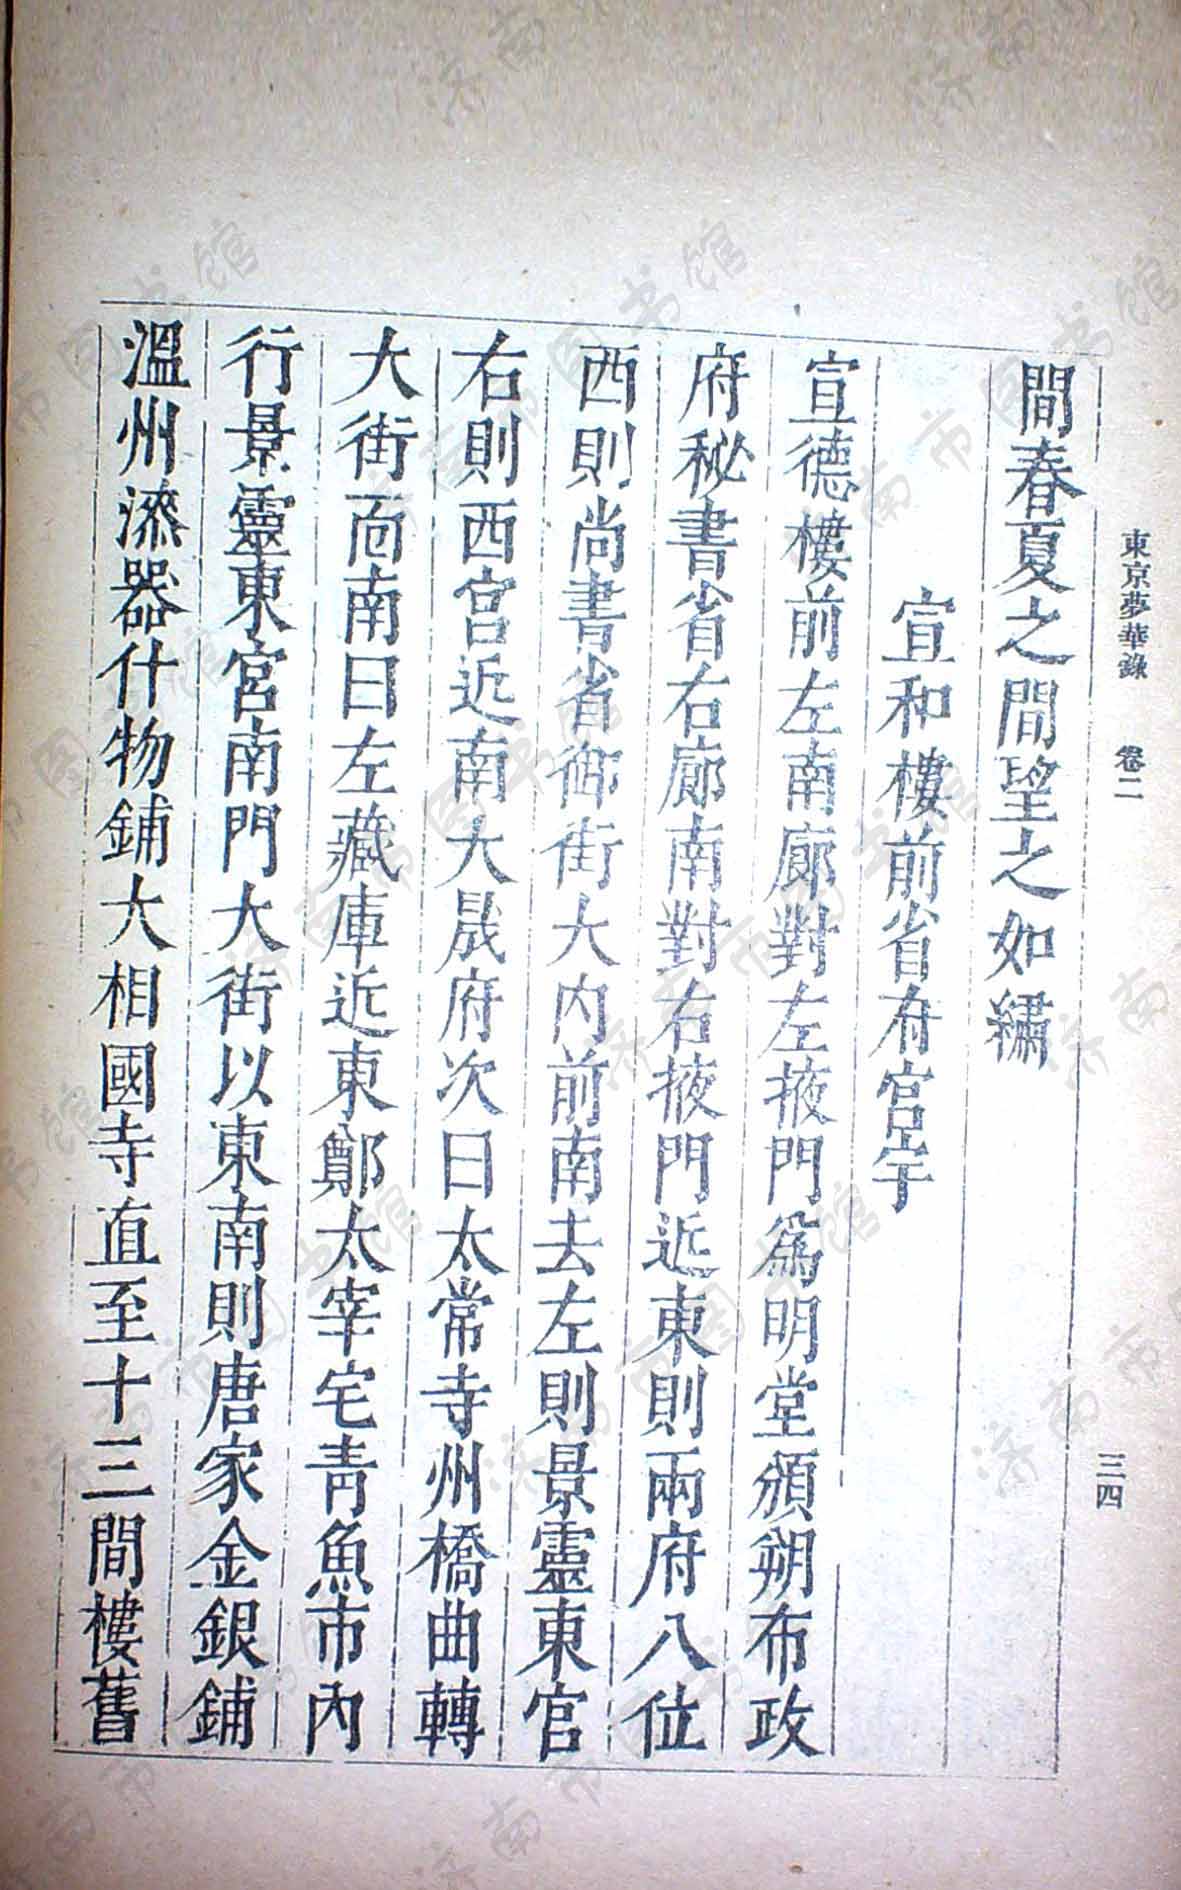 東京夢華錄 卷二 三四
間春夏之間望之如繡
宣和樓前省府宮宇
宣德樓前左南廊對左掖門爲明堂頒朔布政
府秘書省右廊南對右掖門近東則兩府八位
西則尚書省御街大内前南去左則景靈東宮
右則西宮近南大晟府次曰太常寺州橋曲轉
大街面南曰左藏庫近東鄭太宰宅青魚市內
行景靈東宮南門大街以東南則唐家金銀鋪
溫州漆器什物鋪大相國寺直至十三間樓舊
济南市图书馆